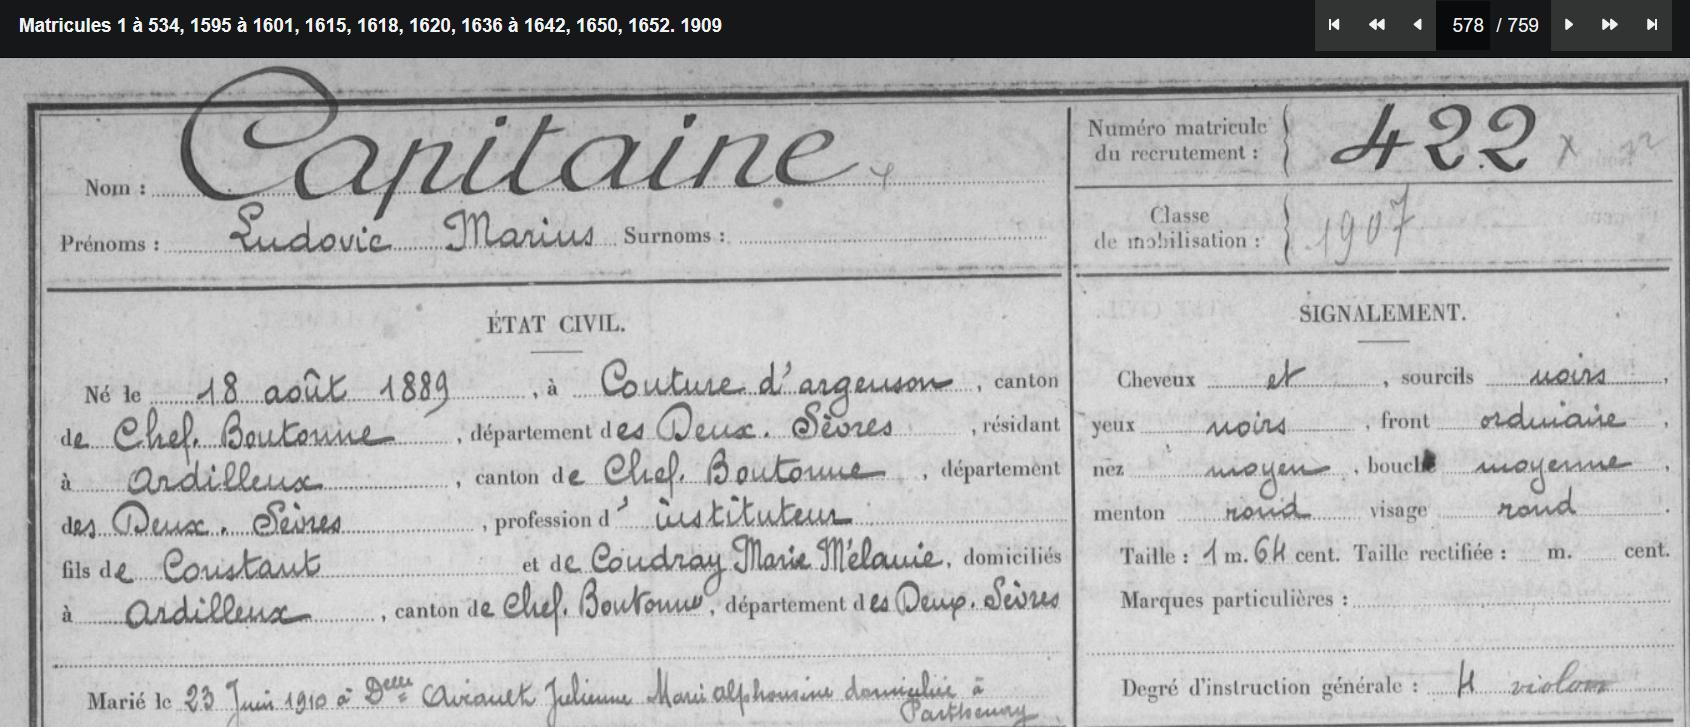 Matricules 1 à 534, 1595 à 1601, 1615, 1618, 1620, 1636 à 1642, 1650, 1652. 1909
578 / 759
Nom : Capitaine
Numéro matricule du recrutement : 422 x
Prénoms : Ludovic Marius Surnoms :
Classe de mobilisation : 1907
ÉTAT CIVIL.
Né le 18 août 1889, à Couture d'argenson, canton
de Chef. Boutonne, département des Deux. Sèvres, résidant
à Ardilleux, canton de Chef. Boutonne, département
des Deux. Sèvres, profession d'instituteur
fils de Constant et de Coudray Marie Mélanie, domiciliés
à Ardilleux, canton de Chef. Boutonne, département des Deux. Sèvres
Marié le 23 Juin 1910 à Delle Airault Julienne Marie alphonsine domiciliée à
Parthenay
SIGNALEMENT.
Cheveux et, sourcils noirs,
yeux noirs, front ordinaire,
nez moyen, bouche moyenne,
menton rond visage rond.
Taille : 1 m. 64 cent. Taille rectifiée : m. cent.
Marques particulières :
Degré d'instruction générale : 4 violon